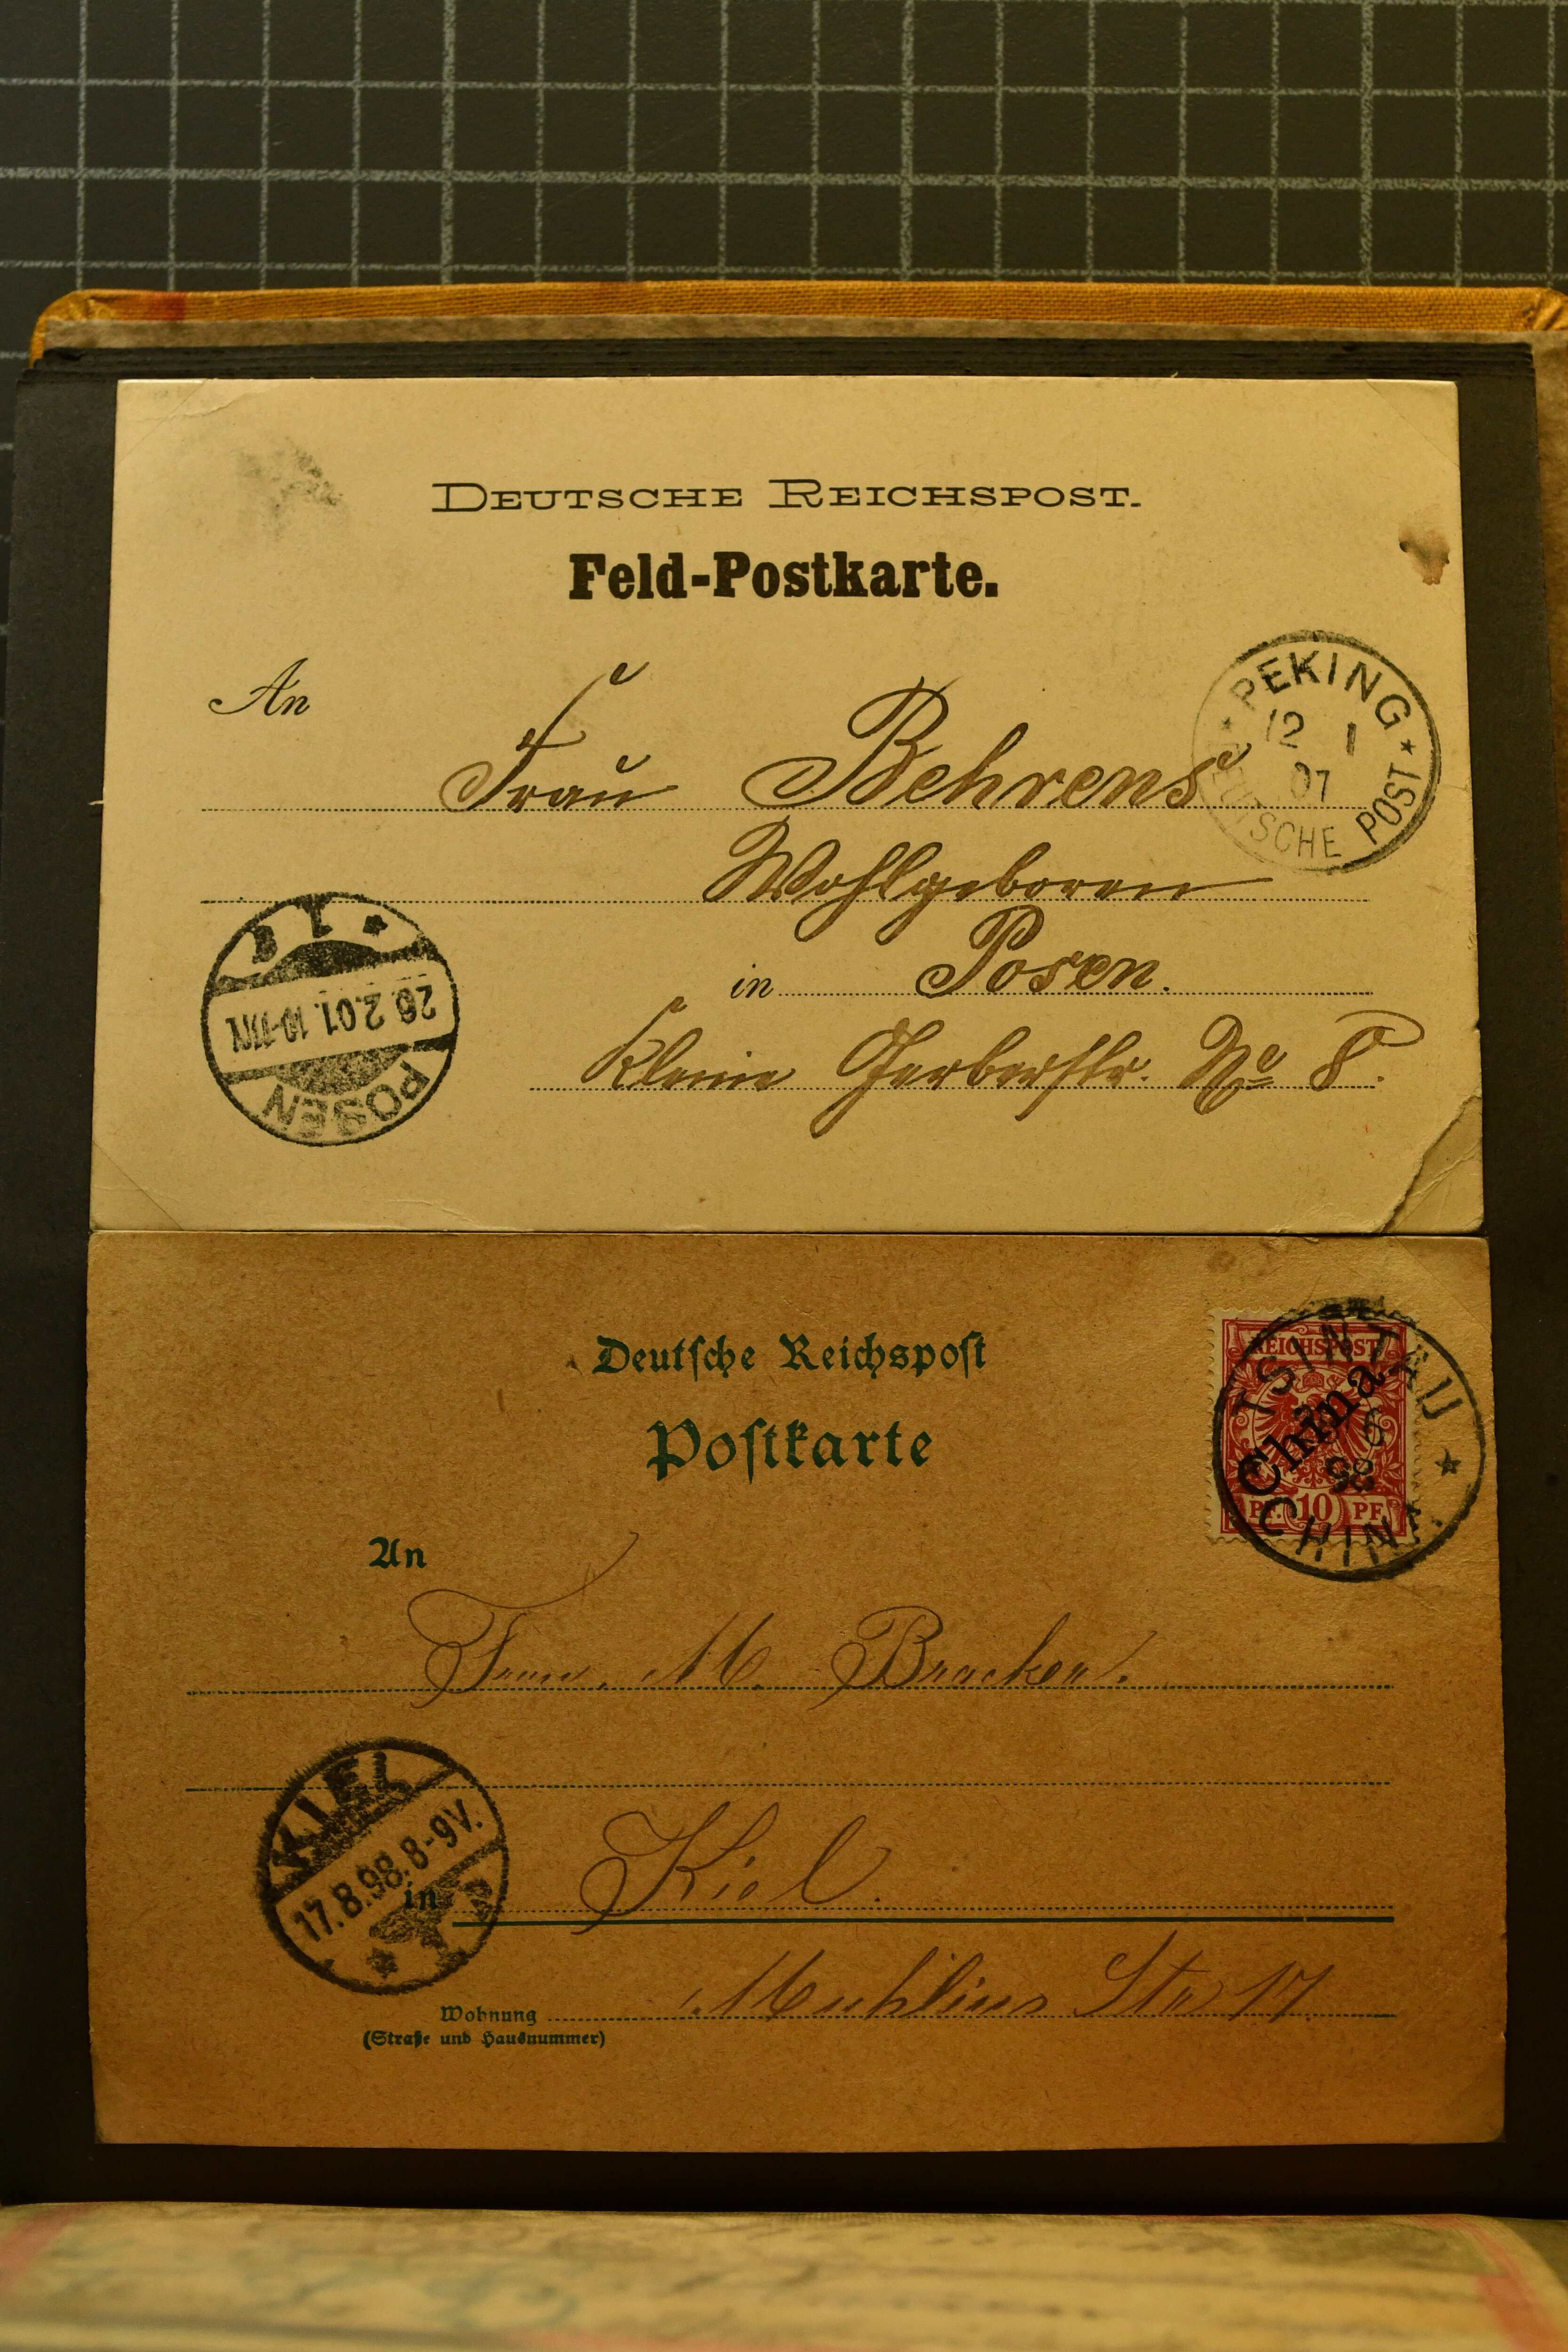 DEUTSCHE REICHSPOST.
Feld-Postkarte.
An
Frau Behrens
PEKING
12 1
01
DEUTSCHE POST
Wohlgeboren
in Posen.
Kleine Gerberstr. No 8.
POSEN
26.2.01. 10-11V
1
Deutsche Reichspost
Postkarte
REICHSPOST
China
PF. 10 PF.
TSINTAU
6
98
CHINA
An
Frau. M. Bracker.
KIEL
17.8.98. 8-9V.
in Kiel.
Wohnung Muhlius Str 17.
(Straße und Hausnummer)